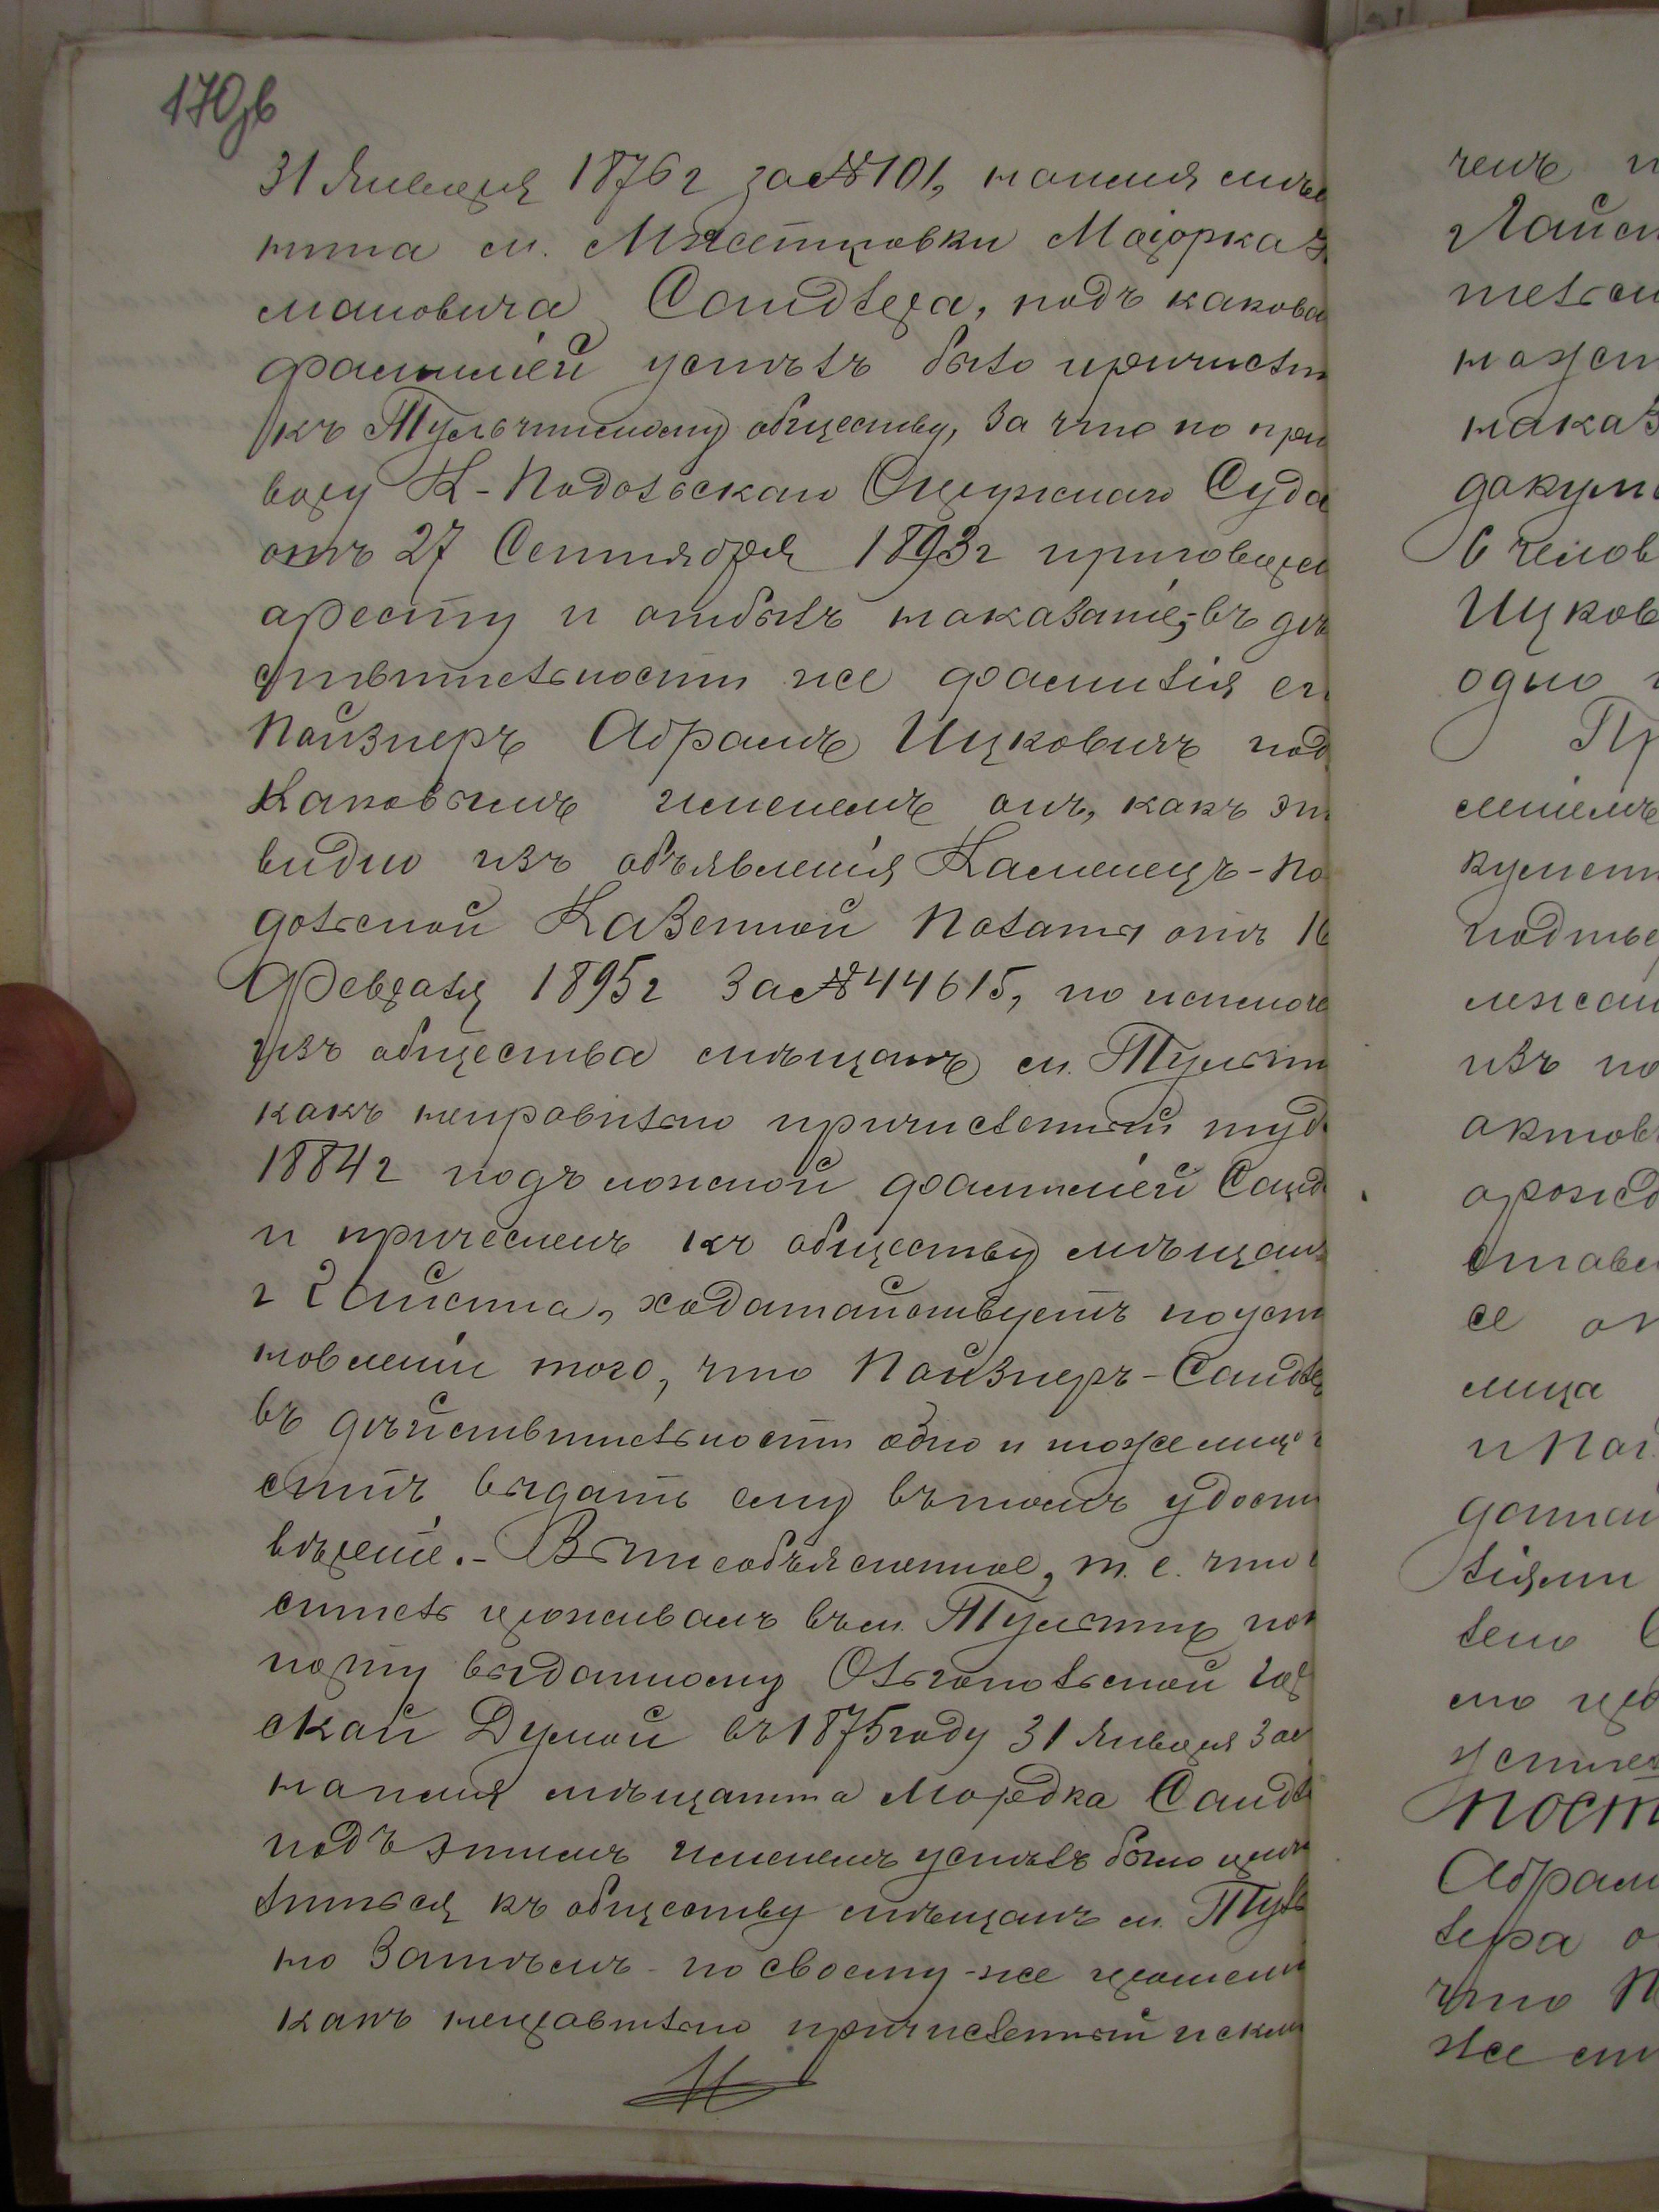 170об
31 Января 1876 г за №101, на имя мѣщ
нина м. Мястковки Маіорка З
мановича Сандлера, подъ каково
фамиліей успѣлъ было причисли
къ Тульчинскому обществу, за что по при
вору К-Подольскаго Окружнаго Суда
отъ 27 Сентября 1893 г приговорен
аресту и отбылъ наказаніе; въ дѣ
ствительности же фамилія ег
Пойзнеръ Абрамъ Ицковичъ под
каковымъ именемъ онъ, какъ эт
видно изъ объявленія Каменецъ-По
дольской Казенной Палаты отъ 16
Февраля 1895 г за №44615, по исключе
изъ общества мѣщанъ м. Тульчи
какъ неправильно причисленный туд
1884 г подъ ложной фамиліей Санд
и причисленъ къ обществу мѣщанъ
г Гайсина, ходатайствуетъ по уст
новленіи того, что Пойзнеръ-Сандле
въ дѣйствительности одно и тоже лицо
ситъ выдать ему въ томъ удосто
вѣреніе. - Вышеобъясненное, т. е. что
ситель проживалъ въ м. Тульчинѣ по
порту выданному Ольгопольской Гор
ской Думой въ 1875 году 31 Января за
на имя мѣщанина Мордка Сандл
подъ этимъ именемъ успѣлъ было при
литься къ обществу мѣщанъ м. Туль
но затѣмъ по своему-же прошені
какъ неправильно причисленный исклю
ченъ
Лайс
тельс
нозст
наказ
докум
6 челов
Ицков
одно
Пр
кумент
подтве
изъ по
актов
се
лица
и Пой
датай
ліями
лено
пост
Абрам
лера о
что П
же